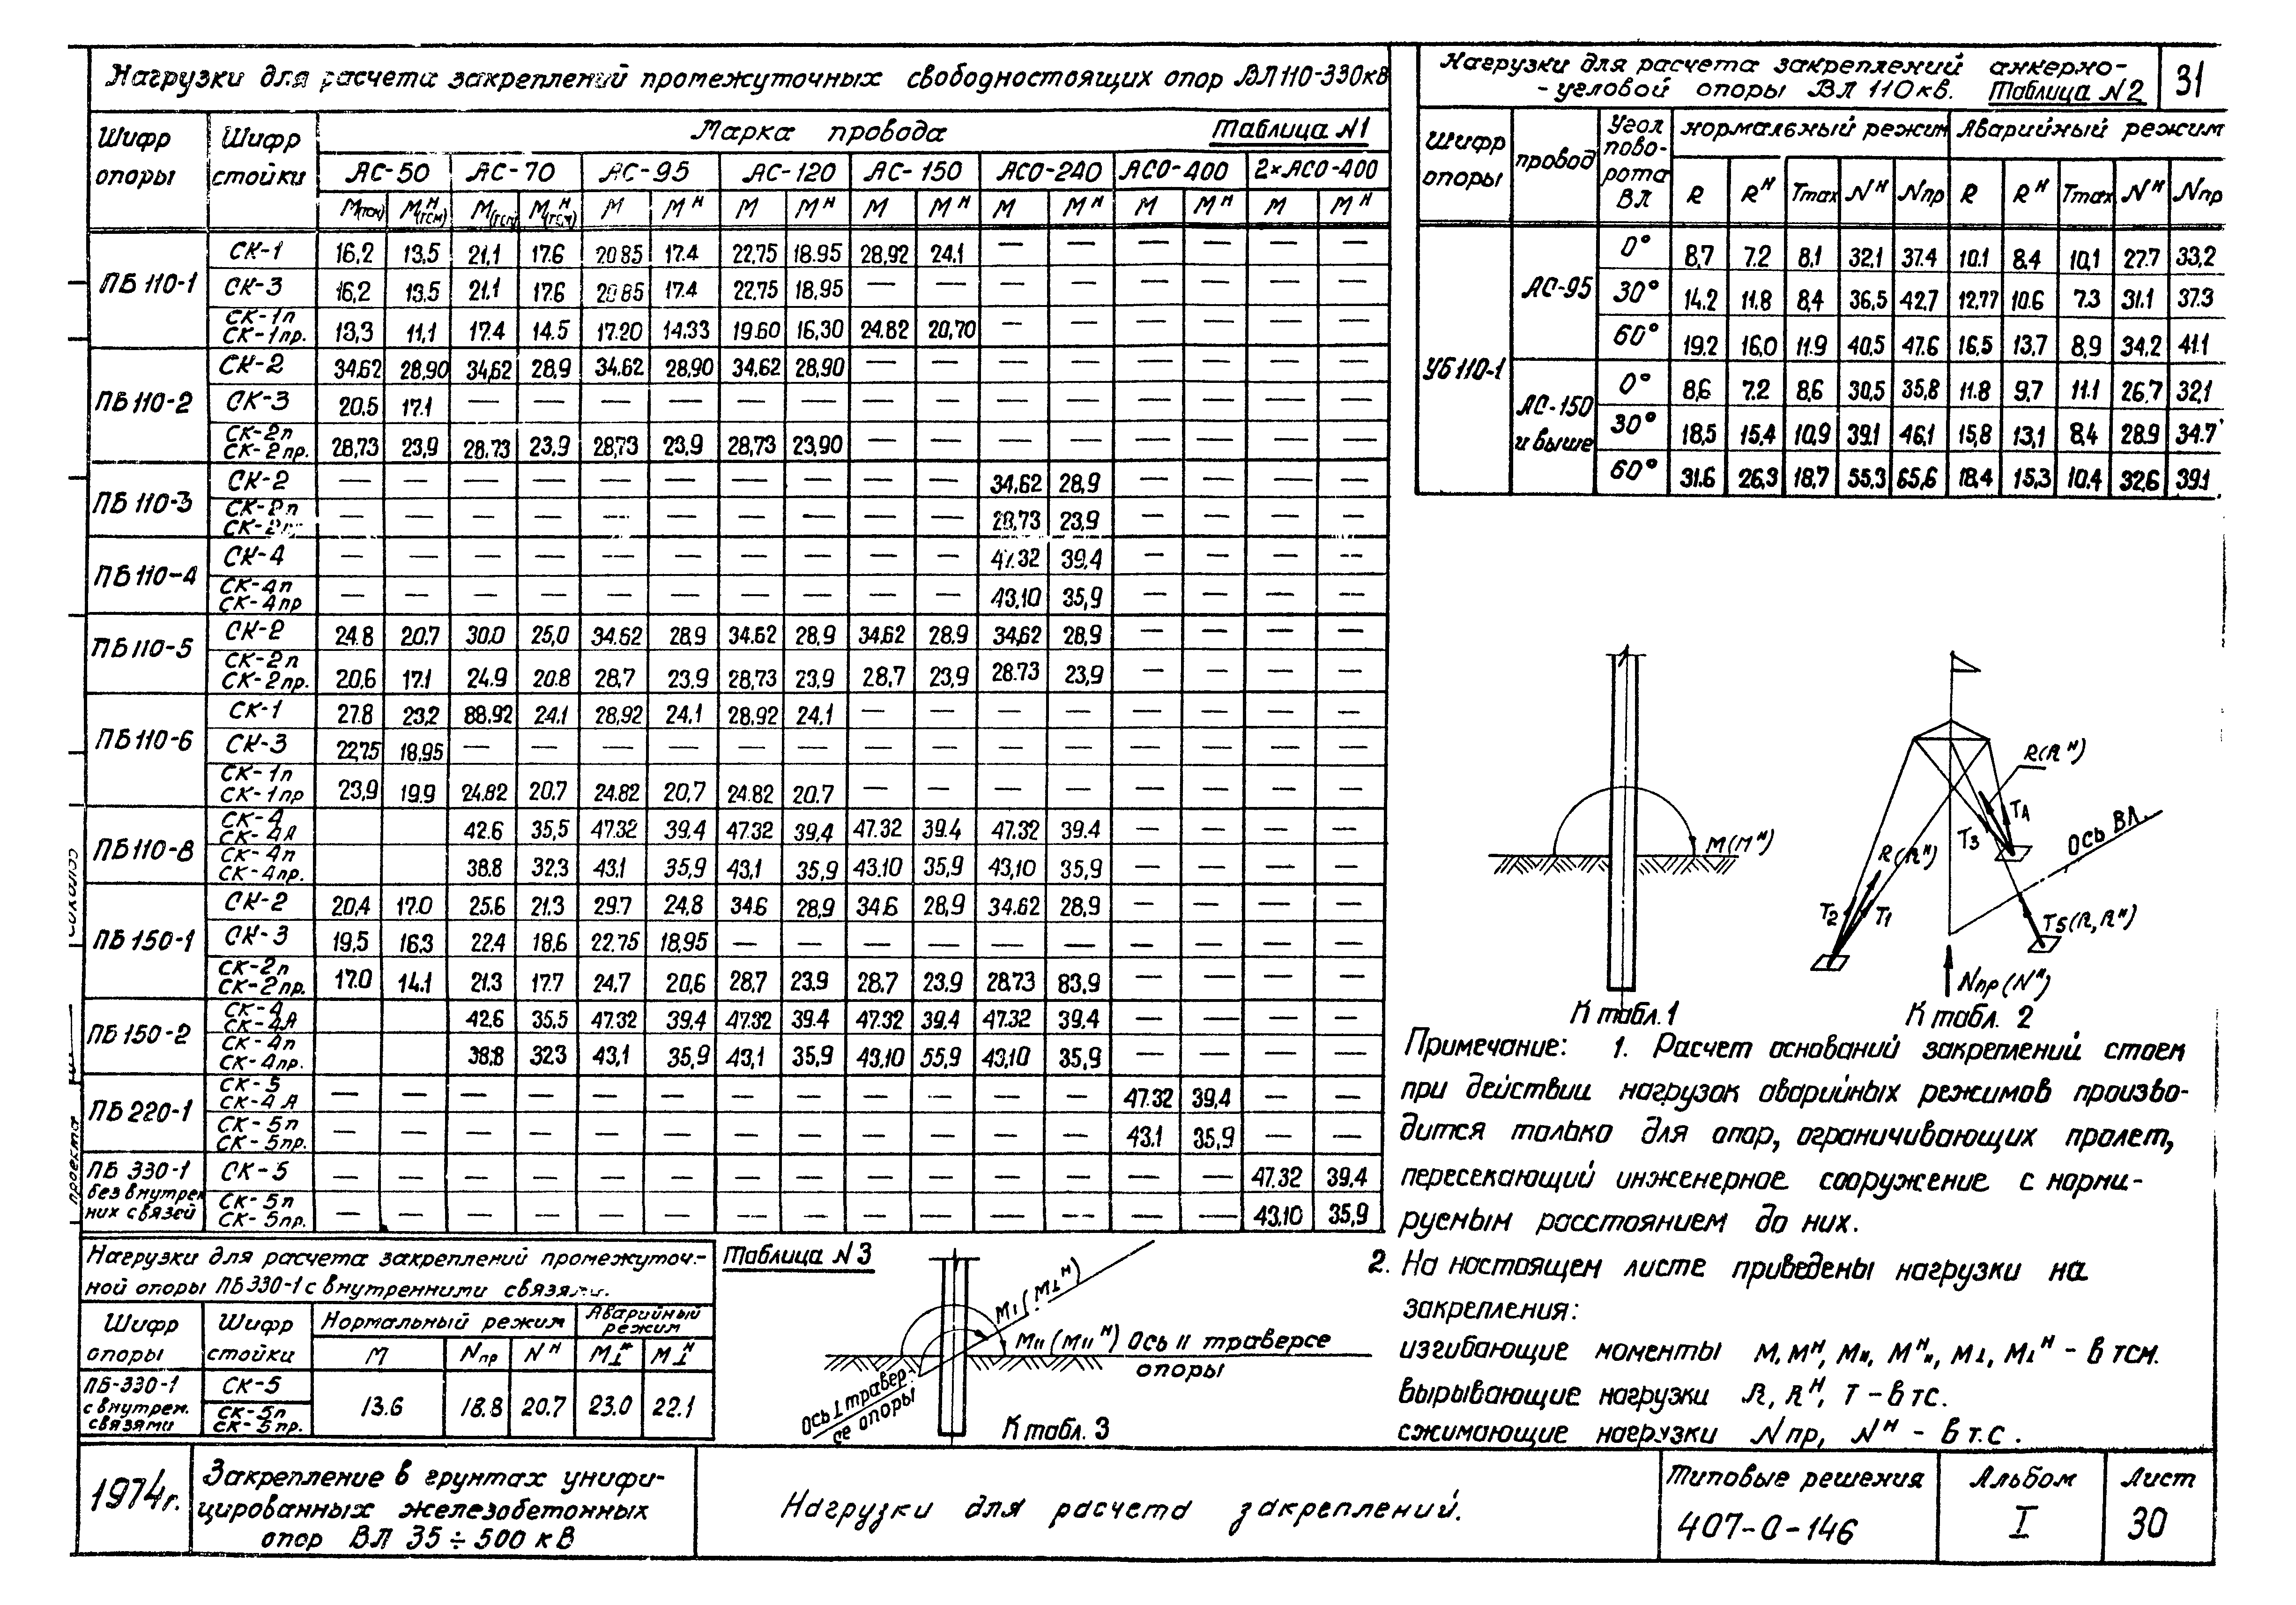 Нагрузки для расчета закреплений промежуточных свободностоящих опор ВЛ 110-330кВ
Таблица N1
Шифр опоры Шифр стойки Марка провода
АС-50 АС-70 АС-95 АС-120 АС-150 АСО-240 АСО-400 2×АСО-400
М(тсм) Мᴴ(тсм) М(тсм) Мᴴ(тсм) М Мᴴ М Мᴴ М Мᴴ М Мᴴ М Мᴴ М Мᴴ
ПБ 110-1
СК-1 16,2 13,5 21,1 17.6 20 85 17.4 22,75 18.95 28,92 24.1 — — — — — —
СК-3 16,2 13.5 21.1 17.6 20 85 17.4 22.75 18,95 — — — — — — — —
СК-1п СК-1пр. 13,3 11,1 17.4 14.5 17.20 14.33 19.60 16,30 24.82 20,70 — — — — — —
ПБ 110-2
СК-2 34.62 28,90 34,62 28.9 34.62 28,90 34,62 28,90 — — — — — — — —
СК-3 20.5 17.1 — — — — — — — — — — — — — —
СК-2п СК-2пр. 28,73 23,9 28.73 23.9 28,73 23,9 28,73 23,90 — — — — — — — —
ПБ 110-3
СК-2 — — — — — — — — — — 34.62 28,9 — — — —
СК-2п — — — — — — — — — — 28.73 23,9 — — — —
ПБ 110-4
СК-4 — — — — — — — — — — 47.32 39,4 — — — —
СК-4п СК-4пр — — — — — — — — — — 43,10 35,9 — — — —
ПБ 110-5
СК-2 24.8 20.7 30.0 25,0 34.62 28,9 34.62 28,9 34.62 28.9 34,62 28,9 — — — —
СК-2п СК-2пр. 20,6 17.1 24.9 20.8 28,7 23.9 28,73 23,9 28,7 23,9 28.73 23,9 — — — —
ПБ 110-6
СК-1 27.8 23,2 88.92 24.1 28,92 24.1 28.92 24.1 — — — — — — — —
СК-3 22,75 18,95 — — — — — — — — — — — — — —
СК-1п СК-1пр 23,9 19.9 24.82 20.7 24.82 20,7 24.82 20.7 — — — — — — — —
ПБ110-8
СК-4 СК-4А 42.6 35,5 47.32 39.4 47.32 39,4 47.32 39.4 47.32 39.4 — — — —
СК-4п СК-4пр. 38.8 32,3 43.1 35,9 43,1 35,9 43.10 35,9 43,10 35,9 — — — —
ПБ 150-1
СК-2 20,4 17.0 25.6 21.3 29.7 24,8 34.6 28,9 34.6 28,9 34.62 28,9 — — — —
СК-3 19,5 16,3 22.4 18,6 22.75 18,95 — — — — — — — — — —
СК-2п СК-2пр. 17.0 14.1 21.3 17.7 24,7 20,6 28,7 23.9 28.7 23.9 28.73 83,9 — — — —
ПБ 150-2
СК-4 СК-4А 42.6 35.5 47.32 39,4 47.32 39.4 47.32 39.4 47.32 39.4 — — — —
СК-4п СК-4пр. 38.8 32.3 43,1 35,9 43,1 35.9 43,10 55,9 43,10 35,9 — — — —
ПБ 220-1
СК-5 СК-4А — — — — — — — — — — — — 47.32 39,4 — —
СК-5п СК-5пр. — — — — — — — — — — — — 43.1 35,9 — —
ПБ 330-1 без внутрен них связей
СК-5 — — — — — — — — — — — — — — 47.32 39.4
СК-5п СК-5пр. — — — — — — — — — — — — — — 43.10 35,9
Нагрузки для расчета закреплений анкерно-
-угловой опоры ВЛ 110кв. Таблица N2
31
Шифр опоры провод Угол пово-рота ВЛ нормальный режим Аварийный режим
R Rᴴ Tmax Nᴴ Nпр R Rᴴ Tmax Nᴴ Nпр
УБ110-1
АС-95
0° 8,7 7.2 8,1 32,1 37.4 10.1 8.4 10,1 27.7 33,2
30° 14.2 11.8 8,4 36,5 42,7 12.77 10.6 7.3 31.1 37.3
60° 19.2 16,0 11.9 40,5 47.6 16,5 13,7 8,9 34.2 41.1
АС-150 и выше
0° 8,6 7.2 8,6 30,5 35,8 11.8 9,7 11.1 26,7 32,1
30° 18,5 15,4 10,9 39.1 46,1 15,8 13,1 8,4 28.9 34.7
60° 31.6 26,3 18,7 55,3 65,6 18,4 15,3 10.4 32,6 39.1
М(Мᴴ)
К табл. 1
R(Rᴴ)
T4
T3
Ось ВЛ.
R(Rᴴ)
T2
T1
T5(R,Rᴴ)
Nпр(Nᴴ)
К табл. 2
Примечание: 1. Расчет оснований закреплений стоек
при действии нагрузок аварийных режимов произво-
дится только для опор, ограничивающих пролет,
пересекающий инженерное сооружение с норми-
руемым расстоянием до них.
2. На настоящем листе приведены нагрузки на
закрепления:
изгибающие моменты М, Мᴴ, М॥, Мᴴ॥, М⊥, М⊥ᴴ – в тсм.
вырывающие нагрузки R, Rᴴ, T – в тс.
сжимающие нагрузки Nпр, Nᴴ – в т.с.
Нагрузки для расчета закреплений промежуточ-
ной опоры ПБ 330-1 с внутренними связями.
Таблица N 3
Шифр опоры Шифр стойки Нормальный режим Аварийный режим
М Nпр Nᴴ М⊥ᴴ М⊥ᴴ
ПБ-330-1 с внутрен. связями
СК-5
СК-5п СК-5пр.
13.6 18.8 20.7 23.0 22.1
М⊥(М⊥ᴴ)
М॥(М॥ᴴ) Ось ॥ траверсе
опоры
Ось ⊥ травер-
се опоры
К табл. 3
проекта
1974г.
Закрепление в грунтах унифи-
цированных железобетонных
опор ВЛ 35÷500 кВ
Нагрузки для расчета закреплений.
Типовые решения
407-0-146
Альбом
I
Лист
30